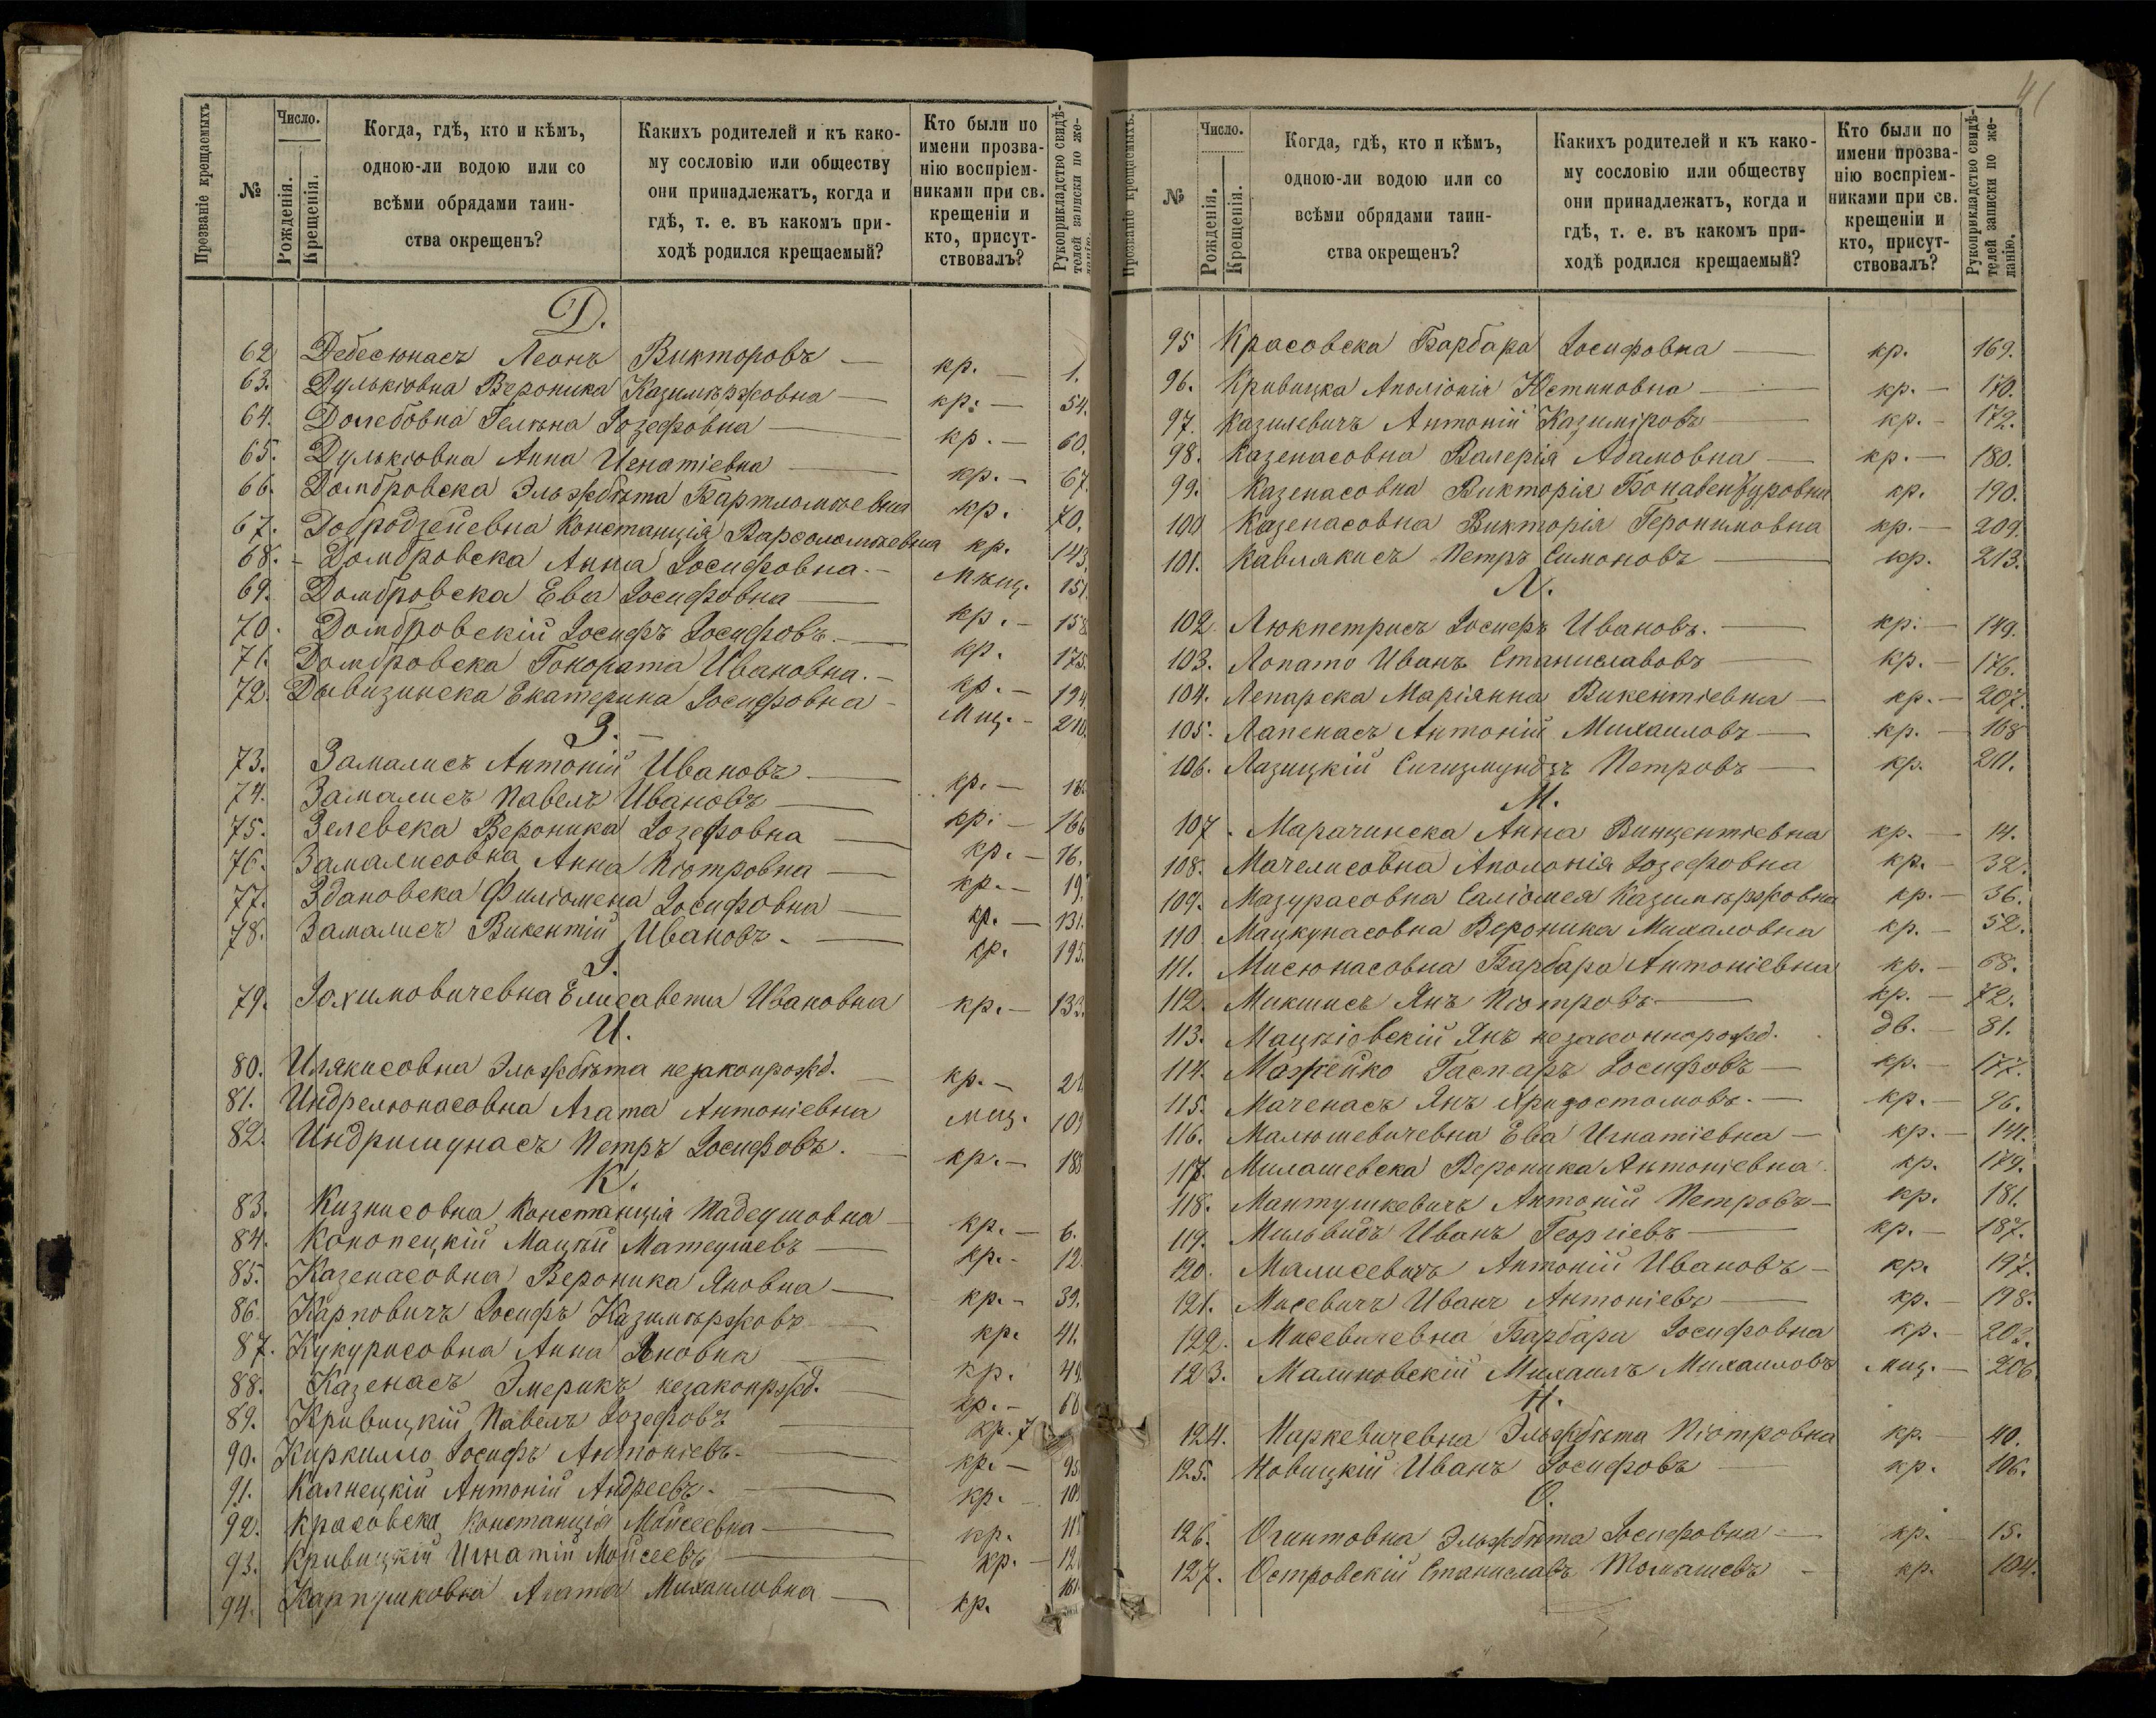 41
Прозваніе крещаемыхъ
№
Число.
Рожденія.
Крещенія.
Когда, гдѣ, кто и кѣмъ,
одною-ли водою или со
всѣми обрядами таин-
ства окрещенъ?
Какихъ родителей и къ како-
му сословію или обществу
они принадлежатъ, когда и
гдѣ, т. е. въ какомъ при-
ходѣ родился крещаемый?
Кто были по
имени прозва-
нію воспріем-
никами при св.
крещеніи и
кто, присут-
ствовалъ?
Рукоприкладство свидѣ-
телей записки по же-
ланію.
Д.
62 Дебесюнасъ Леонъ Викторовъ — кр. — 1.
63. Дулькіовна Вероника Казимѣржовна — кр. — 54.
64. Долебовна Гелѣна Іозефовна — кр. — 60.
65. Дулькіовна Анна Игнатіевна — кр. — 67.
66. Домбровска Эльжбѣта Бартломѣевна кр. 70.
67. Добродзейевна Констанція Варфоломѣевна кр. 143.
68. - Домбровска Анна Іосифовна. - Мѣщ. 151.
69. Домбровска Ева Іосифовна — кр. — 158
70. Домбровскій Іосифъ Іосифовъ. — кр. 175.
71. Домбровска Гонората Ивановна. - кр. — 194
72. Дывизинска Екатерина Іосифовна - Мщ. - 210.
З. -
73. Замалисъ Антоній Ивановъ — кр. — 18.
74. Замалисъ Павелъ Ивановъ — кр. — 166
75. Зелевска Вероника Іозефовна — кр. — 16.
76. Замалисовна Анна Піотровна — кр. — 19.
77. Здановска Филіомена Іосифовна — кр. — 131.
78. Замалисъ Викентій Ивановъ. — кр. 195.
І.
79. Іохимовичевна Елисавета Ивановна кр. — 133.
И.
80. Илякисовна Эльжбѣта незаконрожд. — кр. — 21
81. Индрелюнасовна Агата Антоніевна мщ. 109
82. Индришунасъ Петръ Іосифовъ. — кр. — 188
К.
83. Кизнисовна Констанція Тадеушовна — кр. — 6.
84. Конопецкій Мацѣй Матеушевъ — кр. - 12.
85. Казенасовна Вероника Яновна — кр. - 39.
86. Карповичъ Іосифъ Казимѣржовъ — кр. 41.
87. Кукурисовна Анна Яновна — кр. 49.
88. Казенасъ Эмерикъ незаконрожд. — кр. — 60
89. Кривицкій Павелъ Іозефовъ — кр. 7
90. Киркилло Іосифъ Антоніевъ. — кр. — 95.
91. Калнецкій Антоній Андреевъ. — кр. — 10
92. Красовска Констанція Мойсеевна — кр. 11
93. Кривицкій Игнатій Мойсеевъ — кр. — 12
94. Карпушковна Агата Михаиловна — кр. 161.
Прозваніе крещаемыхъ.
№
Число.
Рожденія.
Крещенія.
Когда, гдѣ, кто и кѣмъ,
одною-ли водою или со
всѣми обрядами таин-
ства окрещенъ?
Какихъ родителей и къ како-
му сословію или обществу
они принадлежатъ, когда и
гдѣ, т. е. въ какомъ при-
ходѣ родился крещаемый?
Кто были по
имени прозва-
нію воспріем-
никами при св.
крещеніи и
кто, присут-
ствовалъ?
Рукоприкладство свидѣ-
телей записки по же-
ланію.
95 Красовска Барбара Іосифовна — кр. 169.
96. Кривицка Аполіонія Юстиновна — кр. — 170.
97. Казилевичъ Антоній Казиміровъ — кр. - 172.
98. Казенасовна Валерія Адамовна — кр. — 180.
99. Казенасовна Викторія Бонавентуровна кр. 190.
100 Казенасовна Викторія Геронимовна кр. — 209.
101. Кавлякисъ Петръ Симоновъ — кр. 213.
Л.
102. Люкпетрисъ Іосифъ Ивановъ. — кр. — 149.
103. Лопато Иванъ Станиславовъ — кр. — 176.
104. Лепарска Маріянна Викентіевна — кр. — 207.
105. Лапенасъ Антоній Михаиловъ — кр. — 168
106. Лазицкій Сигизмундъ Петровъ — кр. 211.
М.
107. Марачинска Анна Винцентіевна кр. — 14.
108. Мачелисовна Аполонія Іозефовна кр. — 32.
109. Мазурасовна Саліомея Казимѣржовна кр. — 36.
110 Мацкунасовна Вероника Михаловна кр. — 52.
111. Мисюнасовна Барбара Антоніевна кр. — 68.
112. Микшисъ Янъ Піотровъ — кр. — 72.
113. Мацкіовскій Янъ незаконнорожд. дв. — 81.
114. Можейко Гаспаръ Іосифовъ — кр. — 177.
115. Маченасъ Янъ Хризостомовъ. — кр. — 96.
116. Малюшевичевна Ева Игнатіевна — кр. — 141.
117. Милашевска Вероника Антоніевна кр. 179.
118. Мантушкевичъ Антоній Петровъ — кр. 181.
119. Мильвидъ Иванъ Георгіевъ — кр. — 187.
120. Малисевичъ Антоній Ивановъ — кр. 197.
121. Мисевичъ Иванъ Антоніевъ — кр. — 198.
122. Мисевичевна Барбара Іосифовна кр. — 202.
123. Малиновскій Михаилъ Михаиловъ мщ. — 206
Н.
124. Наркевичевна Эльжбѣта Піотровна кр. — 40.
125. Новицкій Иванъ Іосифовъ — кр. 106.
О.
126. Огинтовна Эльжбѣта Іосифовна — кр. 15.
127. Островскій Станиславъ Томашевъ - кр. 104.